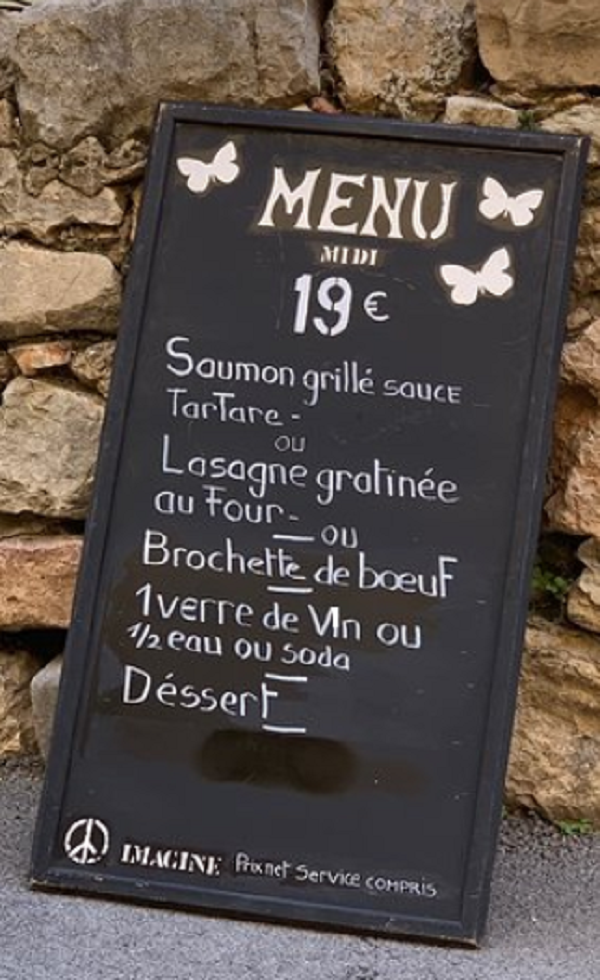 MENU
MIDI
19€
Saumon grillé sauce
Tartare -
ou
Lasagne gratinée
au Four-
ou
Brochette de boeuf
1 verre de Vin ou
1/2 eau ou soda
Déssert
IMAGINE Prix net Service COMPRIS